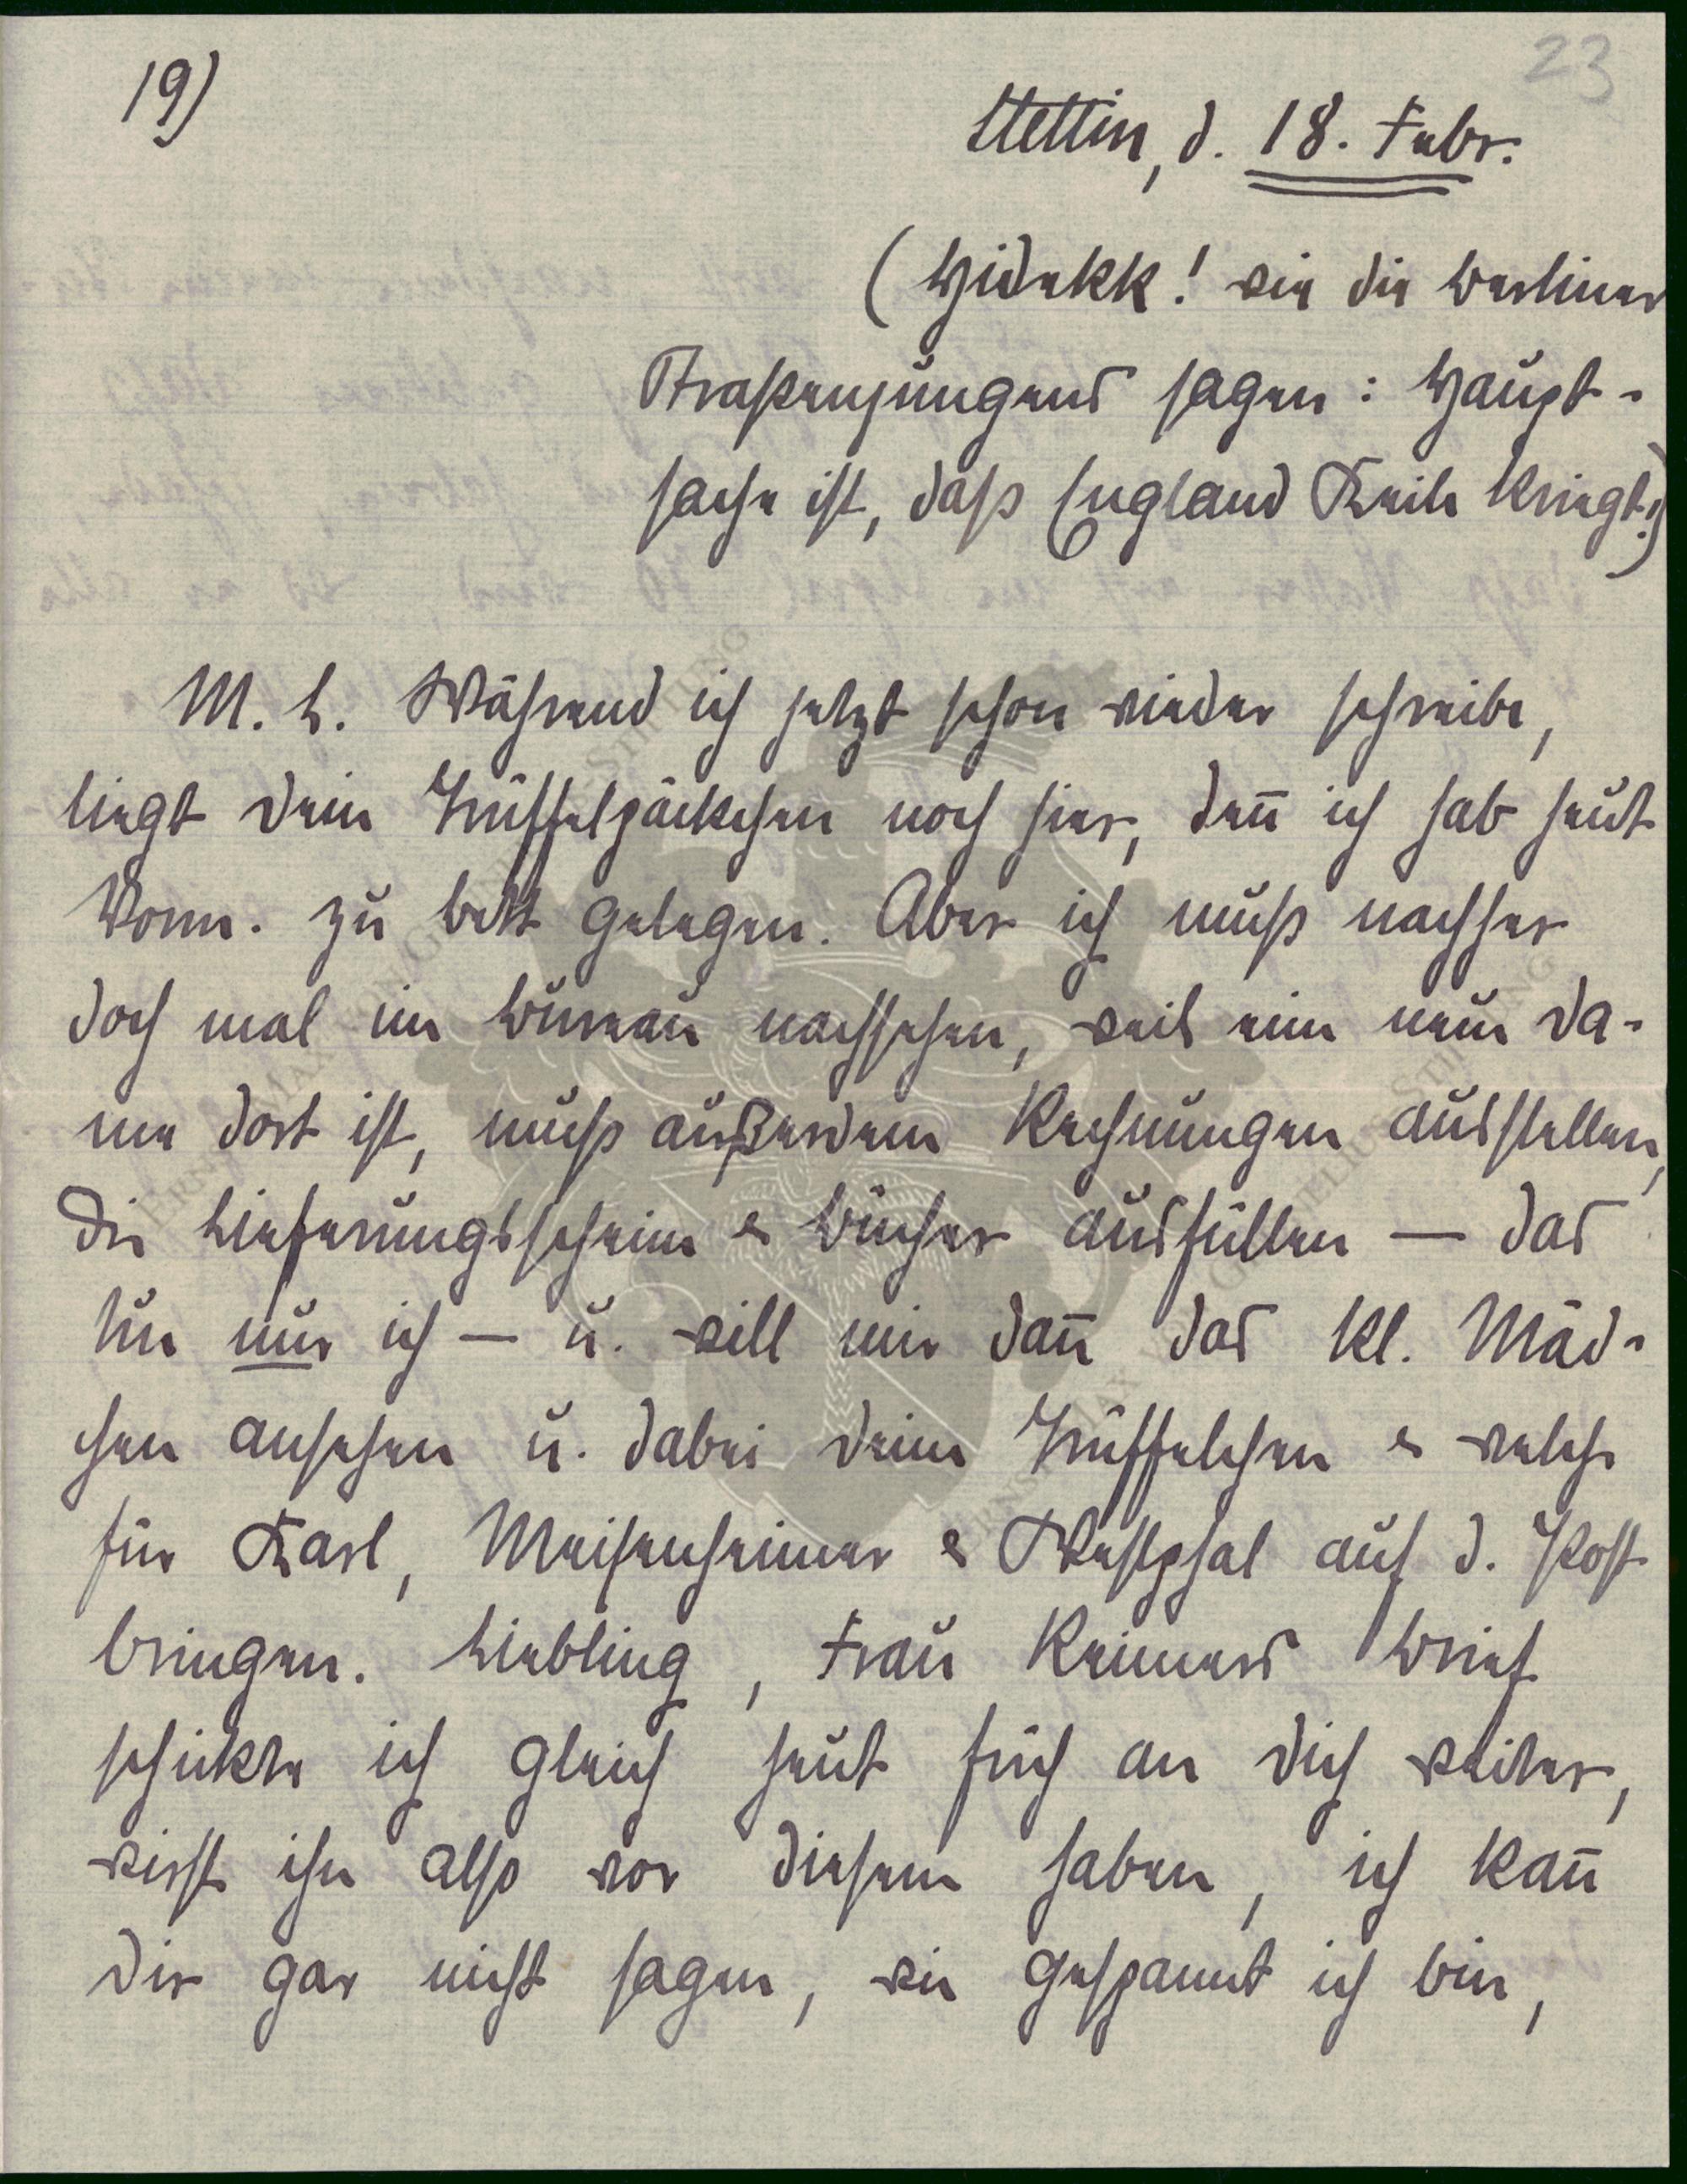 19)
23
Stettin, d. 18. Febr.
(Hidekk! wie die Berliner
Straßenjungens sagen: Haupt-
sache ist, daß England Keile kriegt!)
M. L. Während ich jetzt schon wieder schreibe,
liegt Dein Trüffelpäckchen noch hier, deñ ich hab heut
Vorm. zu Bett gelegen. Aber ich muß nachher
doch mal im Bureau nachsehen, weil eine neue Da-
me dort ist, muß außerdem Rechnungen ausstellen,
die Lieferungsscheine & Bücher ausfüllen — das
tue nur ich — u. will mir dañ das kl. Mäd-
chen ansehen u. dabei Deine Trüffelchen & welche
für Karl, Meisenheimer & Westphal auf d. Post
bringen. Liebling, Frau Reimers Brief
schickte ich gleich heut früh an Dich weiter,
wirst ihn also vor diesem haben, ich kañ
Dir gar nicht sagen, wie gespannt ich bin,